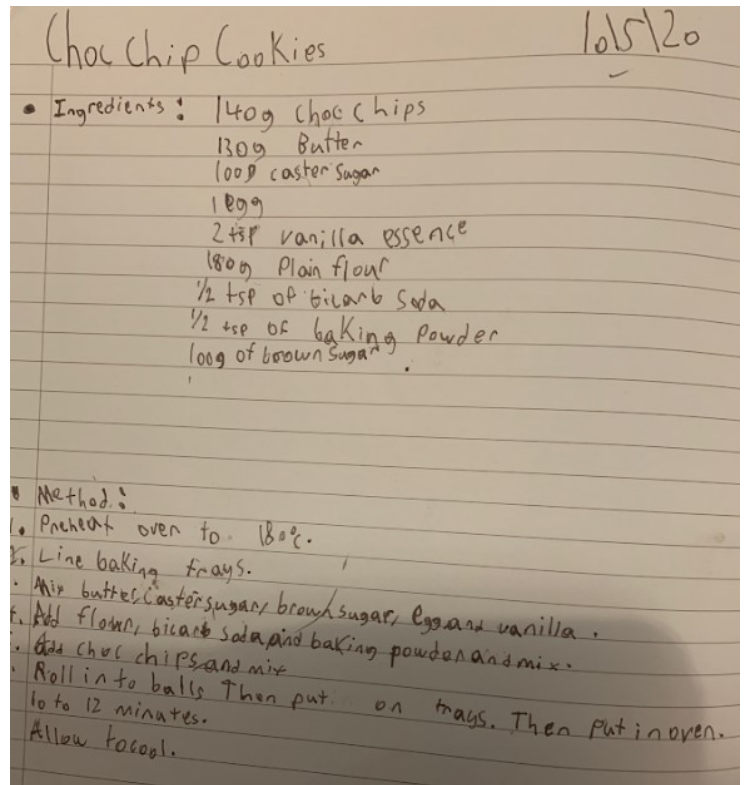 Choc Chip Cookies 10/5/20
• Ingredients: 140g choc chips
130g Butter
100g caster sugar
1 egg
2 tsp vanilla essence
180g Plain flour
1/2 tsp of bicarb Soda
1/2 tsp of baking powder
100g of brown sugar.
• Method:
1. Preheat oven to 180°c.
2. Line baking trays.
. Mix butter, caster sugar, brown sugar, egg and vanilla.
. Add flour, bicarb soda, and baking powder and mix.
. Add choc chips, and mix
. Roll in to balls Then put on trays. Then put in oven.
10 to 12 minutes.
Allow to cool.